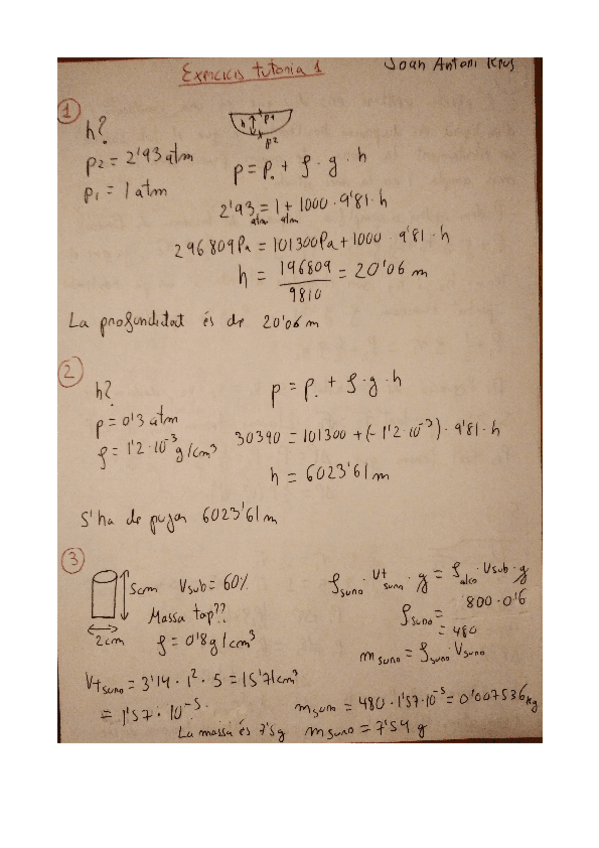 Exercicis tutoria 1
Joan Antoni
1
h?
p2 = 2'93 atm
p1 = 1 atm
h p1
p2
p = p. + ρ · g · h
2'93 = 1 + 1000 · 9'81 · h
atm atm
296809Pa = 101300Pa + 1000 · 9'81 · h
h = 196809 / 9810 = 20'06 m
La profunditat és de 20'06 m
2
h?
p = 0'3 atm
ρ = 1'2·10⁻³ g/cm³
p = p. + ρ · g · h
30390 = 101300 + (-1'2·10⁻³) · 9'81 · h
h = 6023'61 m
S'ha de pujar 6023'61 m
3
5cm
2cm
Vsub = 60%
Massa tap??
ρ = 0'8 g/cm³
ρsuro · Vt suro · g = ρalco · Vsub · g
ρsuro = 800 · 0'6
= 480
msuro = ρsuro · Vsuro
Vtsuro = 3'14 · 1² · 5 = 15'71cm³
= 1'57 · 10⁻⁵
msuro = 480 · 1'57·10⁻⁵ = 0'007536 kg
La massa és 7'5g
msuro = 7'54 g